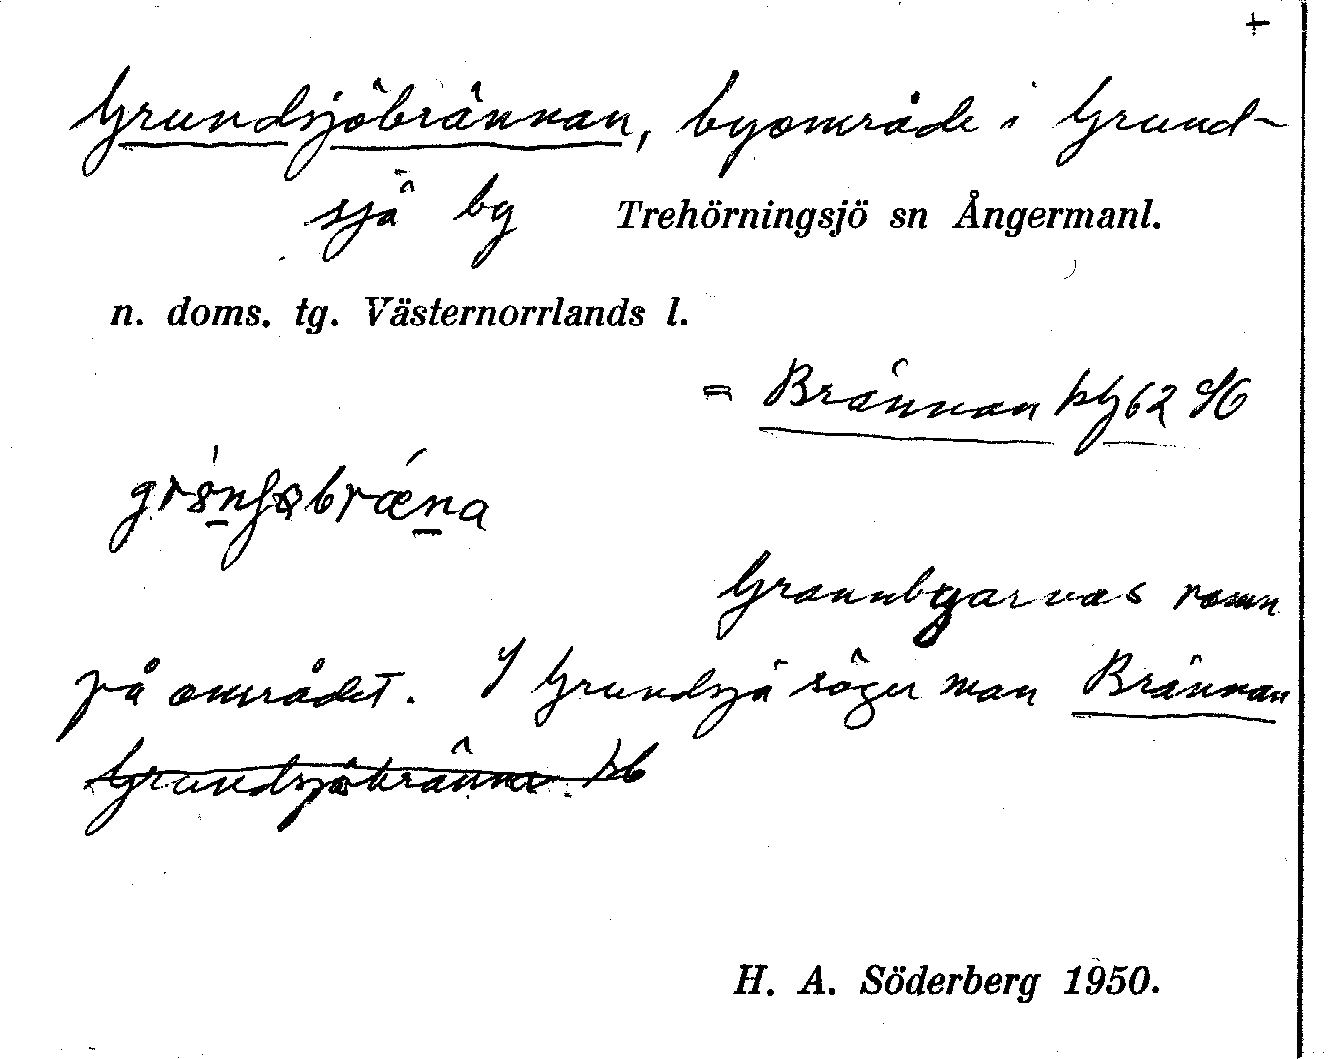 +
Grundsjöbrännan, byområde i Grund-
sjö by Trehörningsjö sn Ångermanl.
n. doms. tg. Västernorrlands l.
= Brännan
Grannbyarnas namn
på området. I Grundsjö säger man Brännan
Grundsjöbränna
H. A. Söderberg 1950.